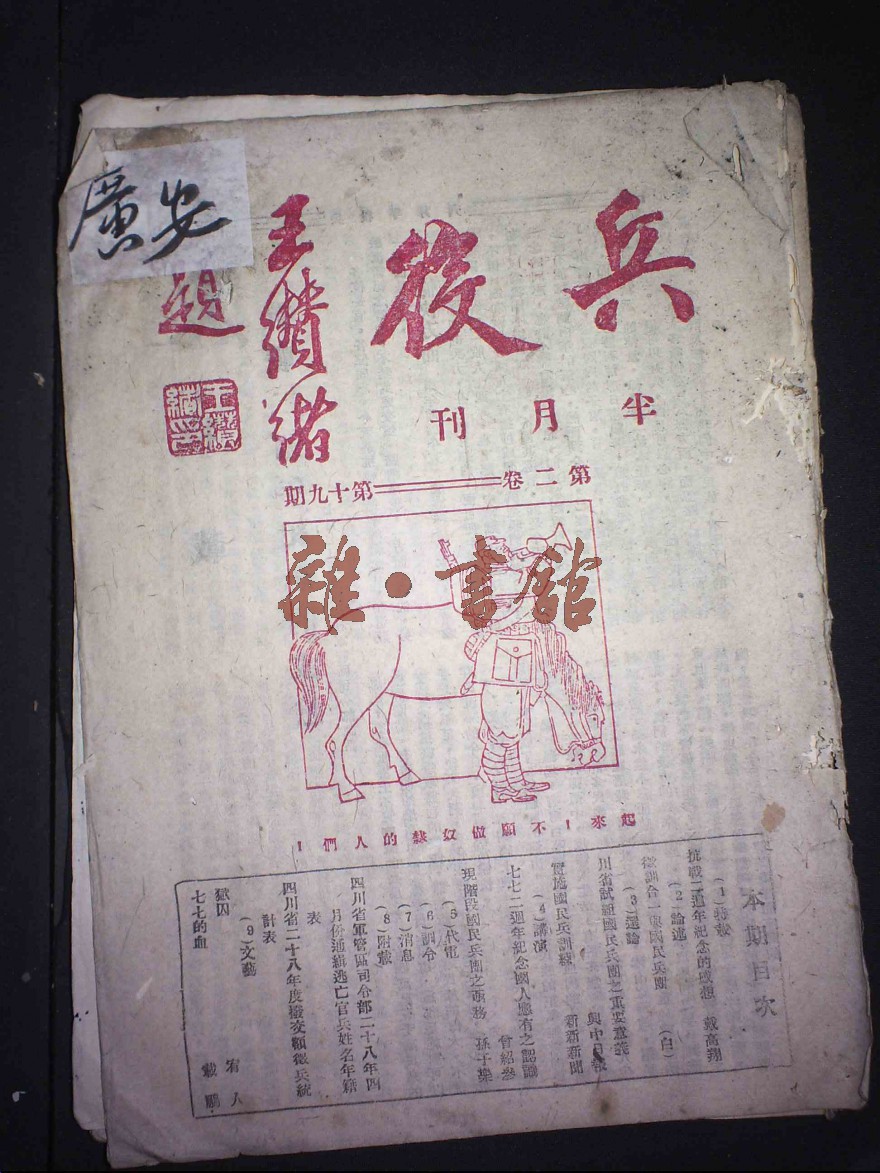 廣安
兵役
王纘緒
題
半月刊
第二卷══第十九期
雜·書館
起來！不願做奴隸的人們！
本期目次
(1)特載
抗戰二週年紀念的感想 戴高翔
(2)論述
徵訓合一與國民兵團 (白)
(3)選論
川省試組國民兵團之重要意義 興中日報
實施國民兵訓練 新新新聞
(4)講演
七七二週年紀念國人應有之認識 曾紹參
現階段國民兵團之要務 孫于樂
(5)代電
(6)訓令
(7)消息
(8)附載
四川省軍管區司令部二十八年四
月份通緝逃亡官兵姓名年籍
表
四川省二十八年度撥交額徵兵統
計表
(9)文藝
獄囚 宥人
七七的血 戴鵬